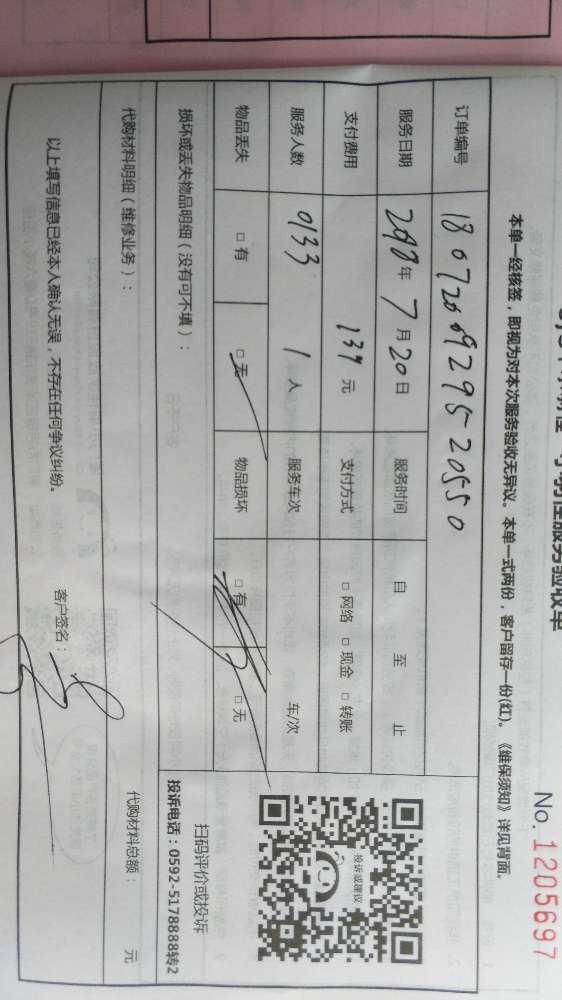 服务验收单
No. 1205697
本单一经核签，即视为对本次服务验收无异议。本单一式两份，客户留存一份(红)。《维保须知》详见背面。
订单编号 1807200929520550
服务日期 2018年 7月 20日 服务时间 自 至 止
支付费用 139 元 支付方式 □ 网络 □ 现金 □ 转账
服务人数 0133 1 人 服务车次 车/次
物品丢失 □ 有 □ 无 物品损坏 □ 有 □ 无
损坏或丢失物品明细（没有可不填）：
代购材料明细（维修业务）： 代购材料总额： 元
以上填写信息已经本人确认无误，不存在任何争议纠纷。 客户签名：
投诉或建议
扫码评价或投诉
投诉电话：0592-5178888转2